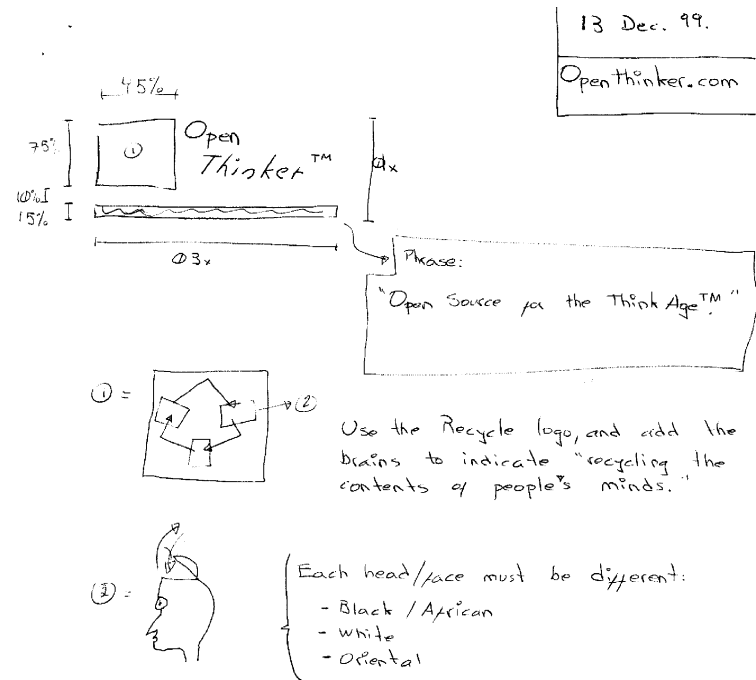 13 Dec. 99.
Openthinker.com
45%
75%
①
Open
Thinker™
10%
15%
Φx
Φ3x
Phrase:
"Open Source for the Think Age™."
① =
②
Use the Recycle logo, and add the
brains to indicate "recycling the
contents of people's minds."
② =
Each head/face must be different:
- Black / African
- White
- Oriental